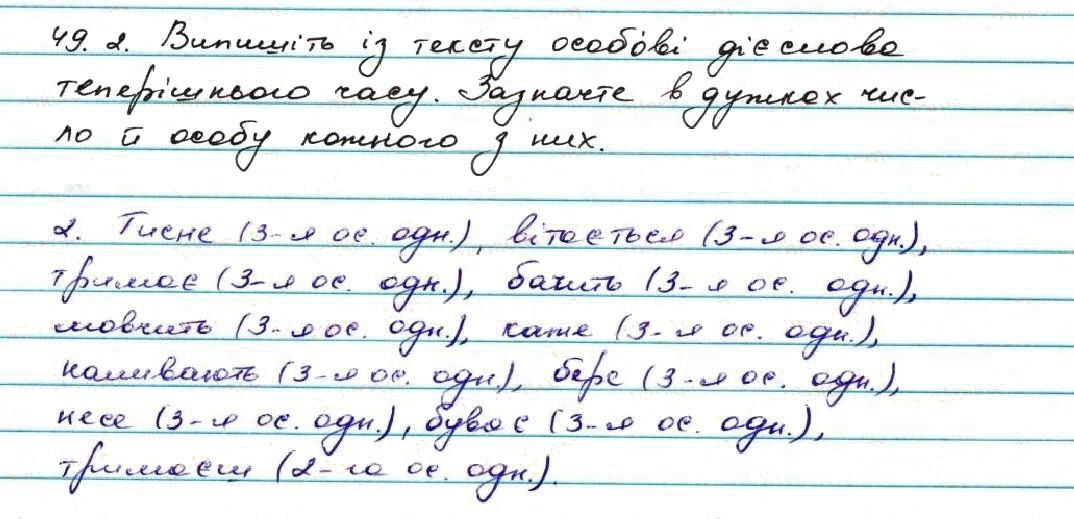 49. 2. Випишіть із тексту особові дієслова
теперішнього часу. Зазначте в дужках чис-
ло й особу кожного з них.
2. Тисне (3-я ос. одн.), вітається (3-я ос. одн.),
тримає (3-я ос. одн.), бачить (3-я ос. одн.),
мовчить (3-я ос. одн.), каже (3-я ос. одн.),
наливають (3-я ос. одн.), бере (3-я ос. одн.),
несе (3-я ос. одн.), буває (3-я ос. одн.),
тримаєш (2-га ос. одн.).